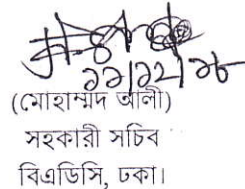 ১১/১২/১৮
(মোহাম্মদ আলী)
সহকারী সচিব
বিএডিসি, ঢকা।